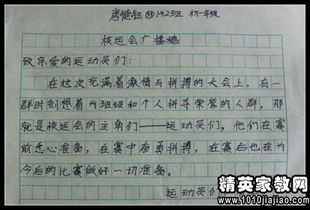 唐健钰 1423班 初一年级
校运会广播稿
致亲爱的运动员们:
在这次充满着激情与拼搏的大会上,有一
群时刻想着为班级和个人拼夺荣誉的人群,那
就是校运会的主角们——运动员们。他们在赛
前忠心准备,在赛中奋勇拼搏,在赛后也在为
今后的比赛做好一切准备。
运动员们
精英家教网
www.1010jiajiao.com